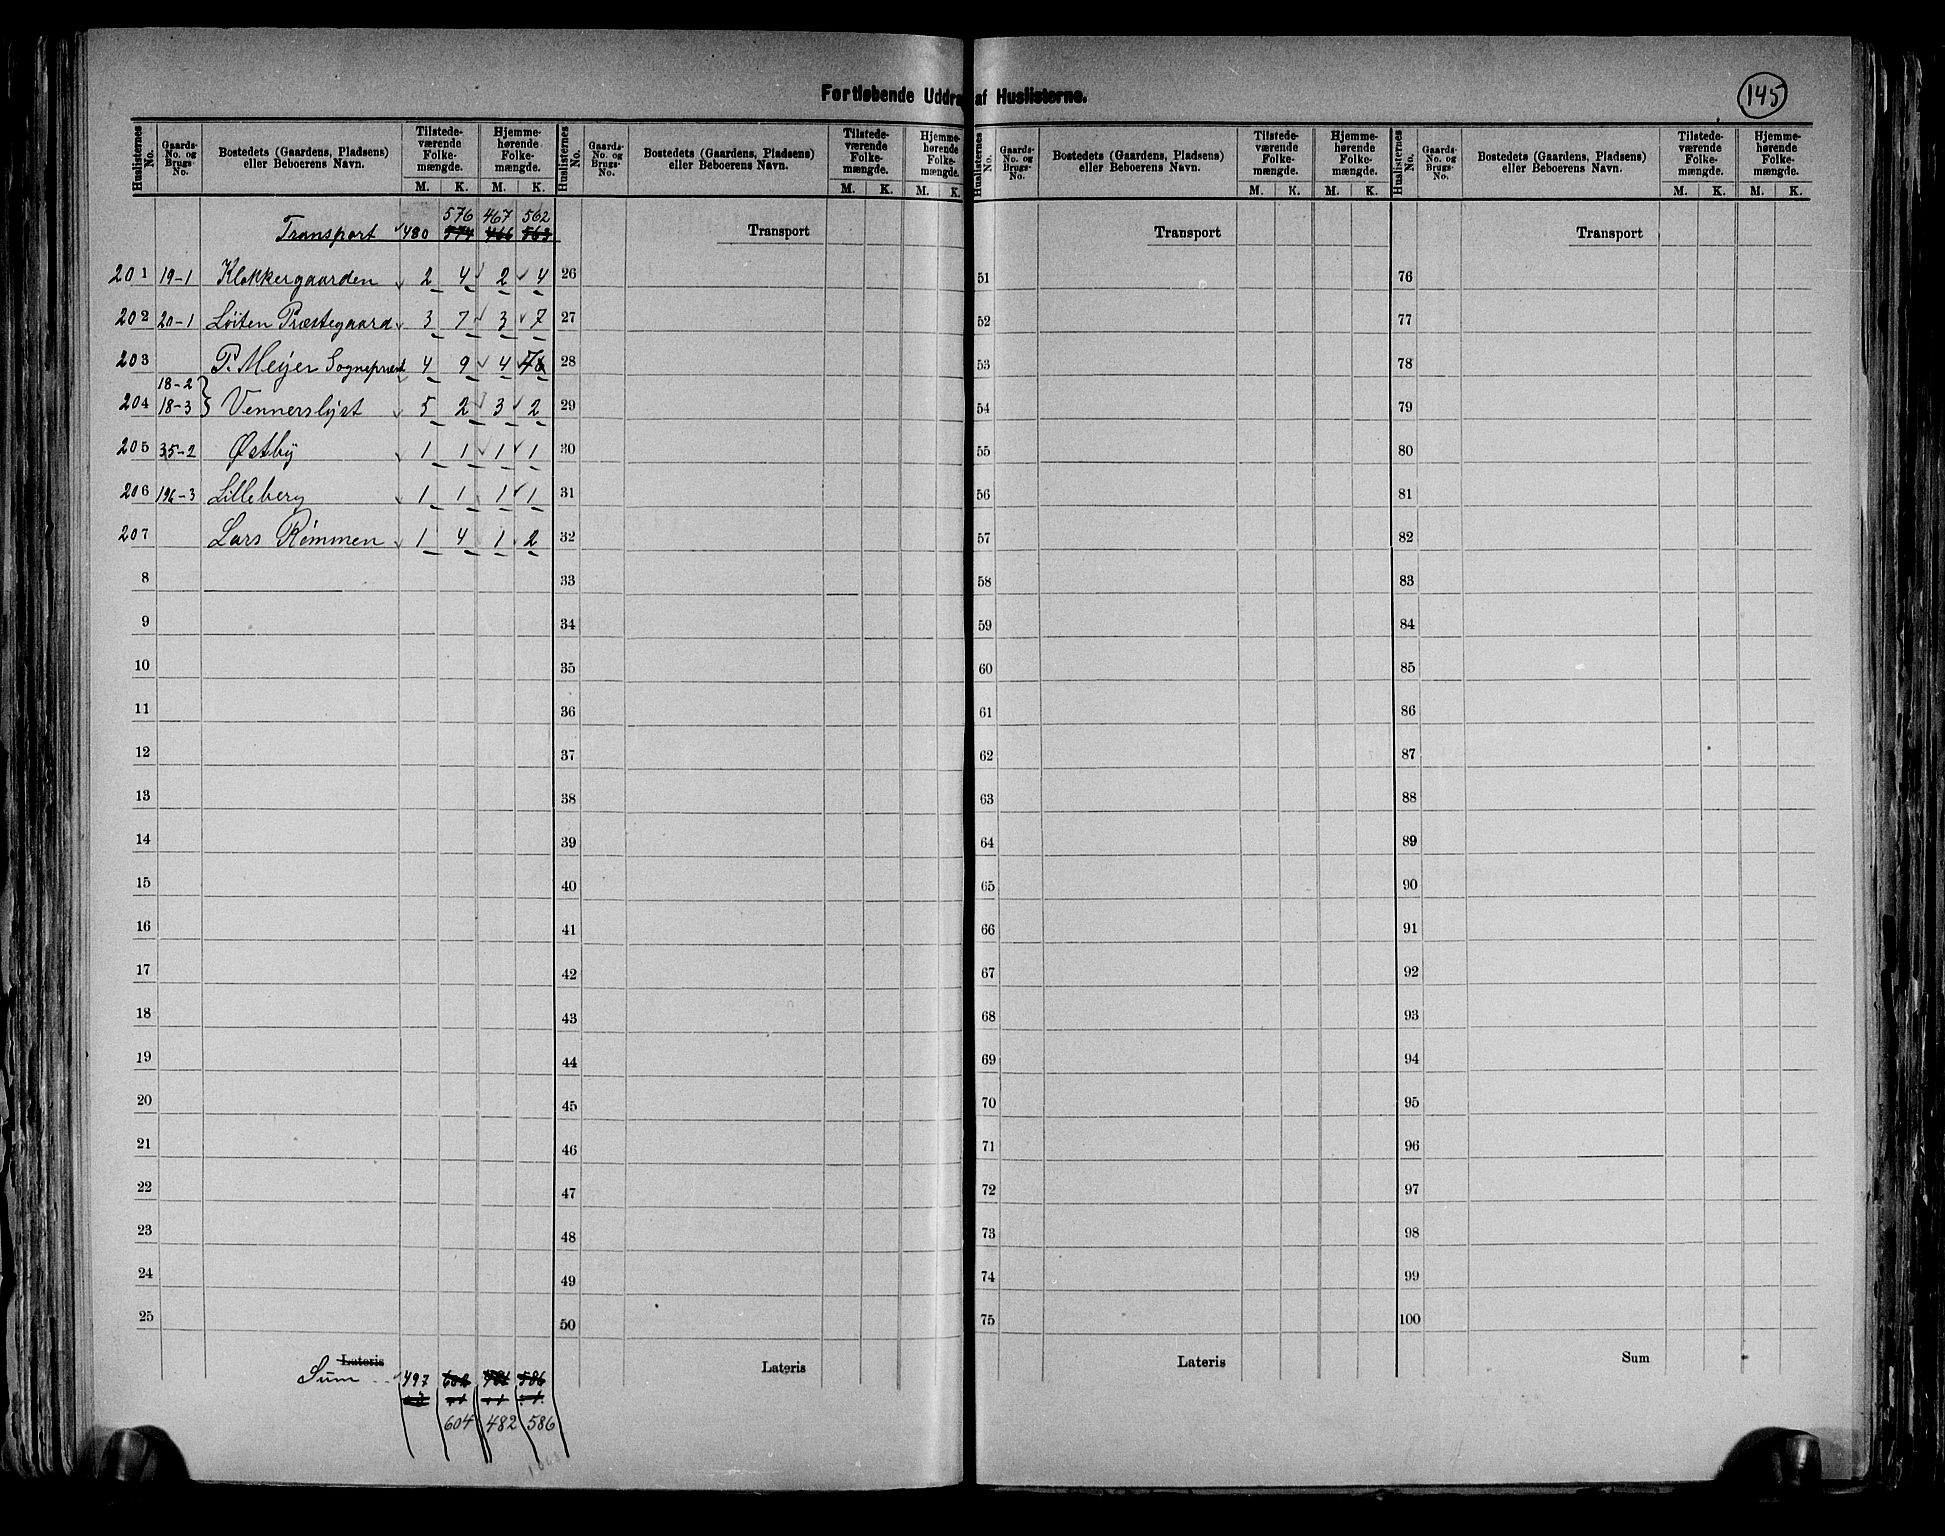 Fortløbende Uddra af Huslisterne.
145
Huslisternes No. Gaards-No. og Brugs-No. Bostedets (Gaardens, Pladsens) eller Beboerens Navn. Tilstedeværende Folkemængde. M. K. Hjemmehørende Folkemængde. M. K.
576 467 562
Transport 480 574 466 563
201 19-1 Klokkergaarden 2 4 2 4
202 20-1 Løiten Præstegaard 3 7 3 7
203 P. Meyer Sognepræst 4 9 4 7
18-2
204 18-3 Vennerslyst 5 2 3 2
205 35-2 Østby 1 1 1 1
206 196-3 Lilleberg 1 1 1 1
207 Lars Rømmen 1 4 1 2
8
9
10
11
12
13
14
15
16
17
18
19
20
21
22
23
24
25
Lateris
Sum 497 586
604 482 586
Huslisternes No. Gaards-No. og Brugs-No. Bostedets (Gaardens, Pladsens) eller Beboerens Navn. Tilstedeværende Folkemængde. M. K. Hjemmehørende Folkemængde. M. K.
Transport
26
27
28
29
30
31
32
33
34
35
36
37
38
39
40
41
42
43
44
45
46
47
48
49
50
Lateris
Huslisternes No. Gaards-No. og Brugs-No. Bostedets (Gaardens, Pladsens) eller Beboerens Navn. Tilstedeværende Folkemængde. M. K. Hjemmehørende Folkemængde. M. K.
Transport
51
52
53
54
55
56
57
58
59
60
61
62
63
64
65
66
67
68
69
70
71
72
73
74
75
Lateris
Huslisternes No. Gaards-No. og Brugs-No. Bostedets (Gaardens, Pladsens) eller Beboerens Navn. Tilstedeværende Folkemængde. M. K. Hjemmehørende Folkemængde. M. K.
Transport
76
77
78
79
80
81
82
83
84
85
86
87
88
89
90
91
92
93
94
95
96
97
98
99
100
Sum